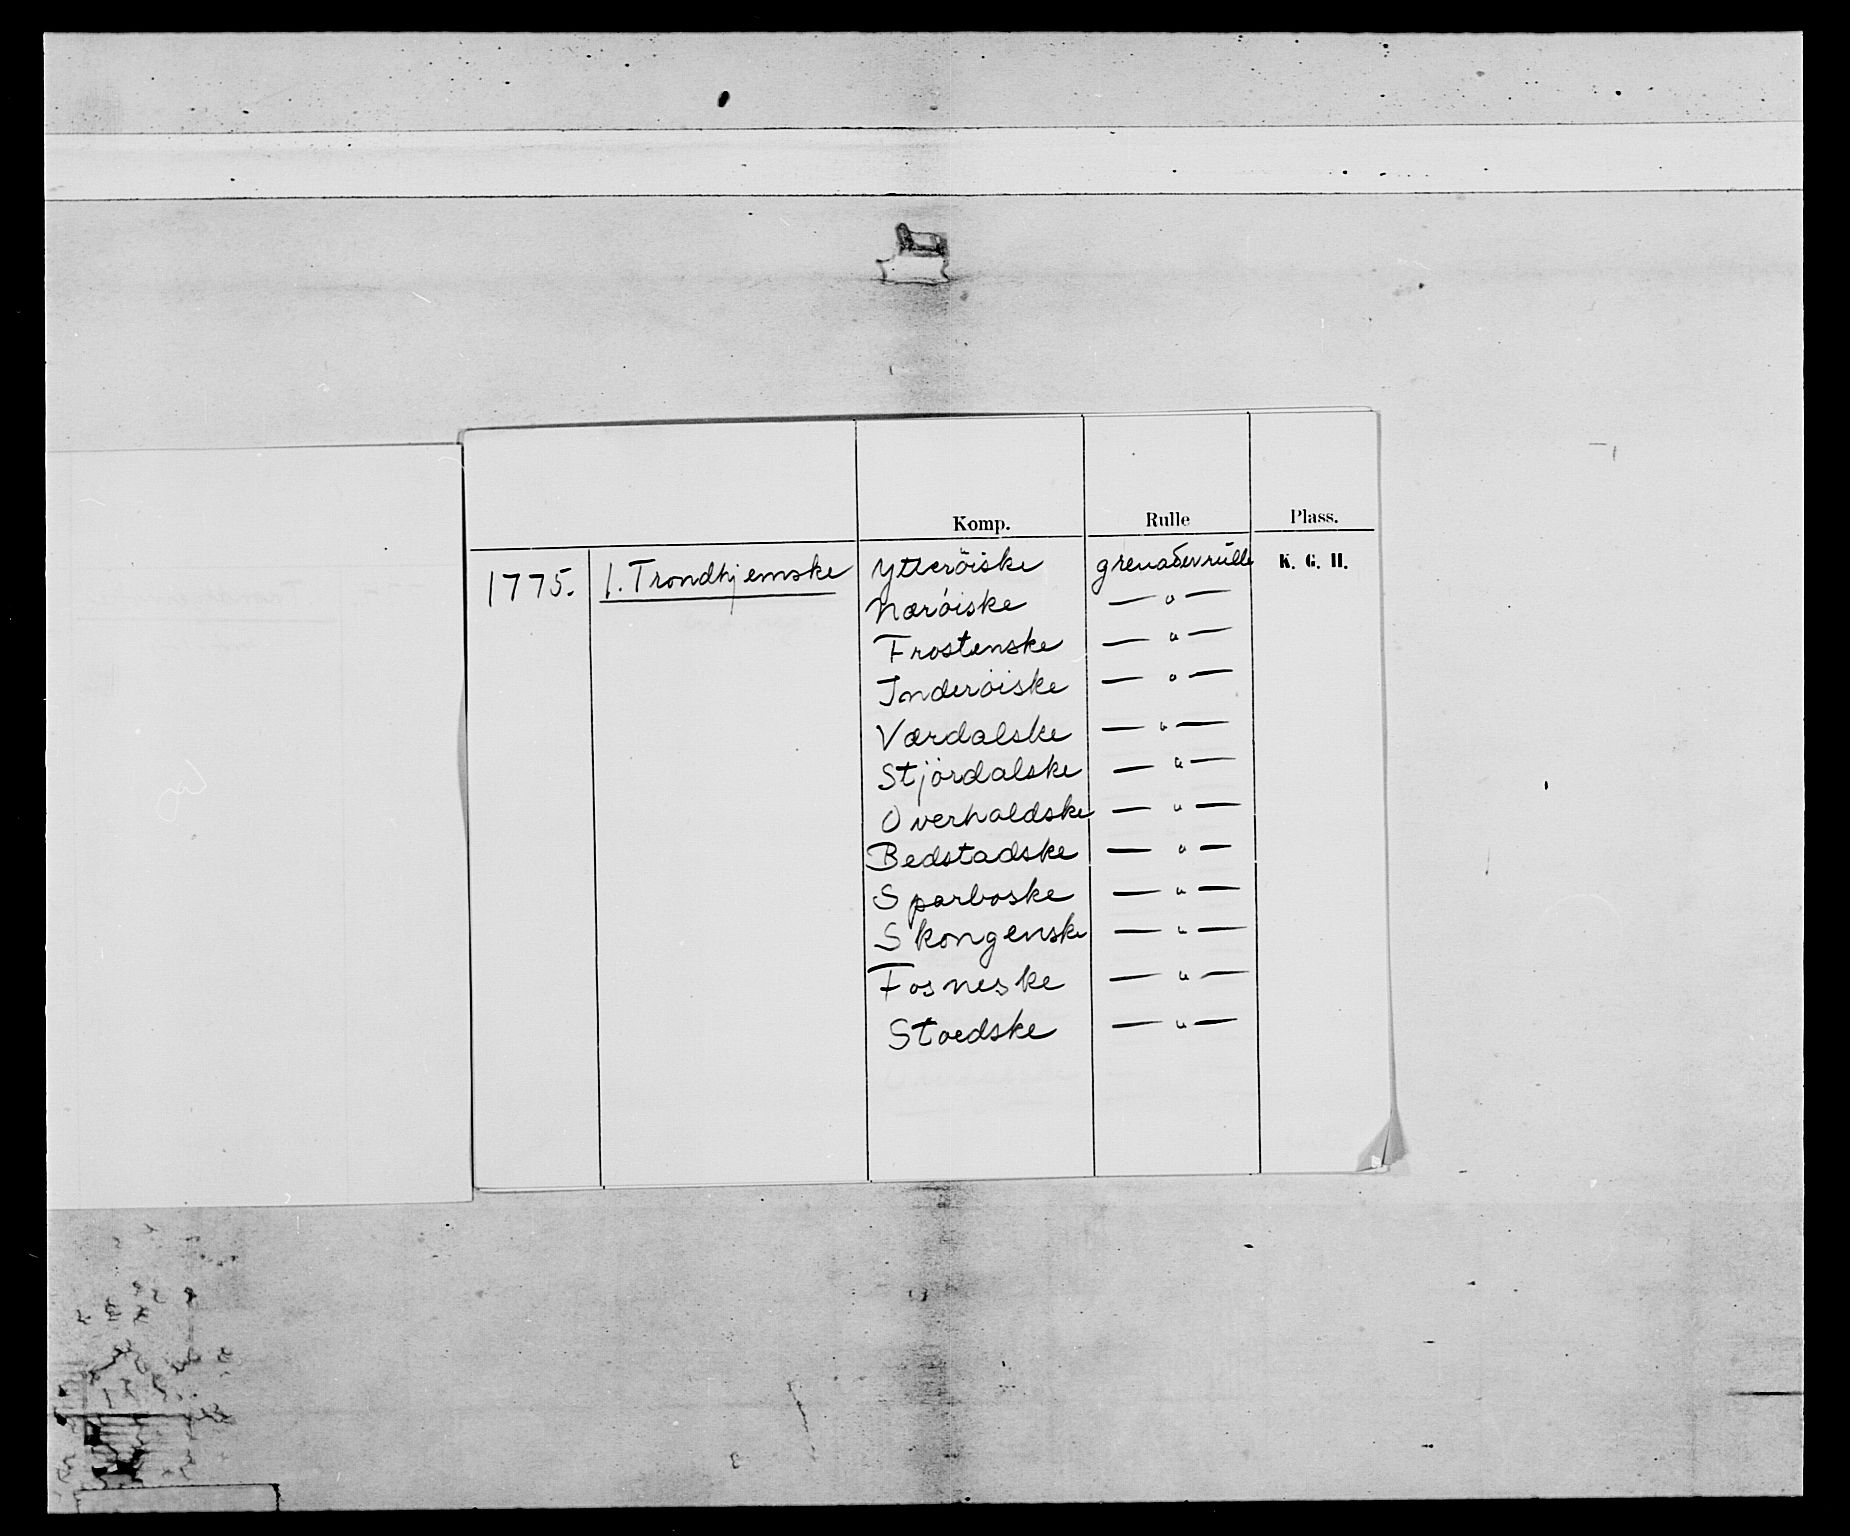 Komp. Rulle Plass.
1775. 1. Trondhjemske Ytterøiske grenaderrulle K. G. H.
Nærøiske — " —
Frostenske — " —
Inderøiske — " —
Værdalske — " —
Stjørdalske — " —
Overhaldske — " —
Bedstadske — " —
Sparboske — " —
Skongenske — " —
Fosneske — " —
Stoedske — " —